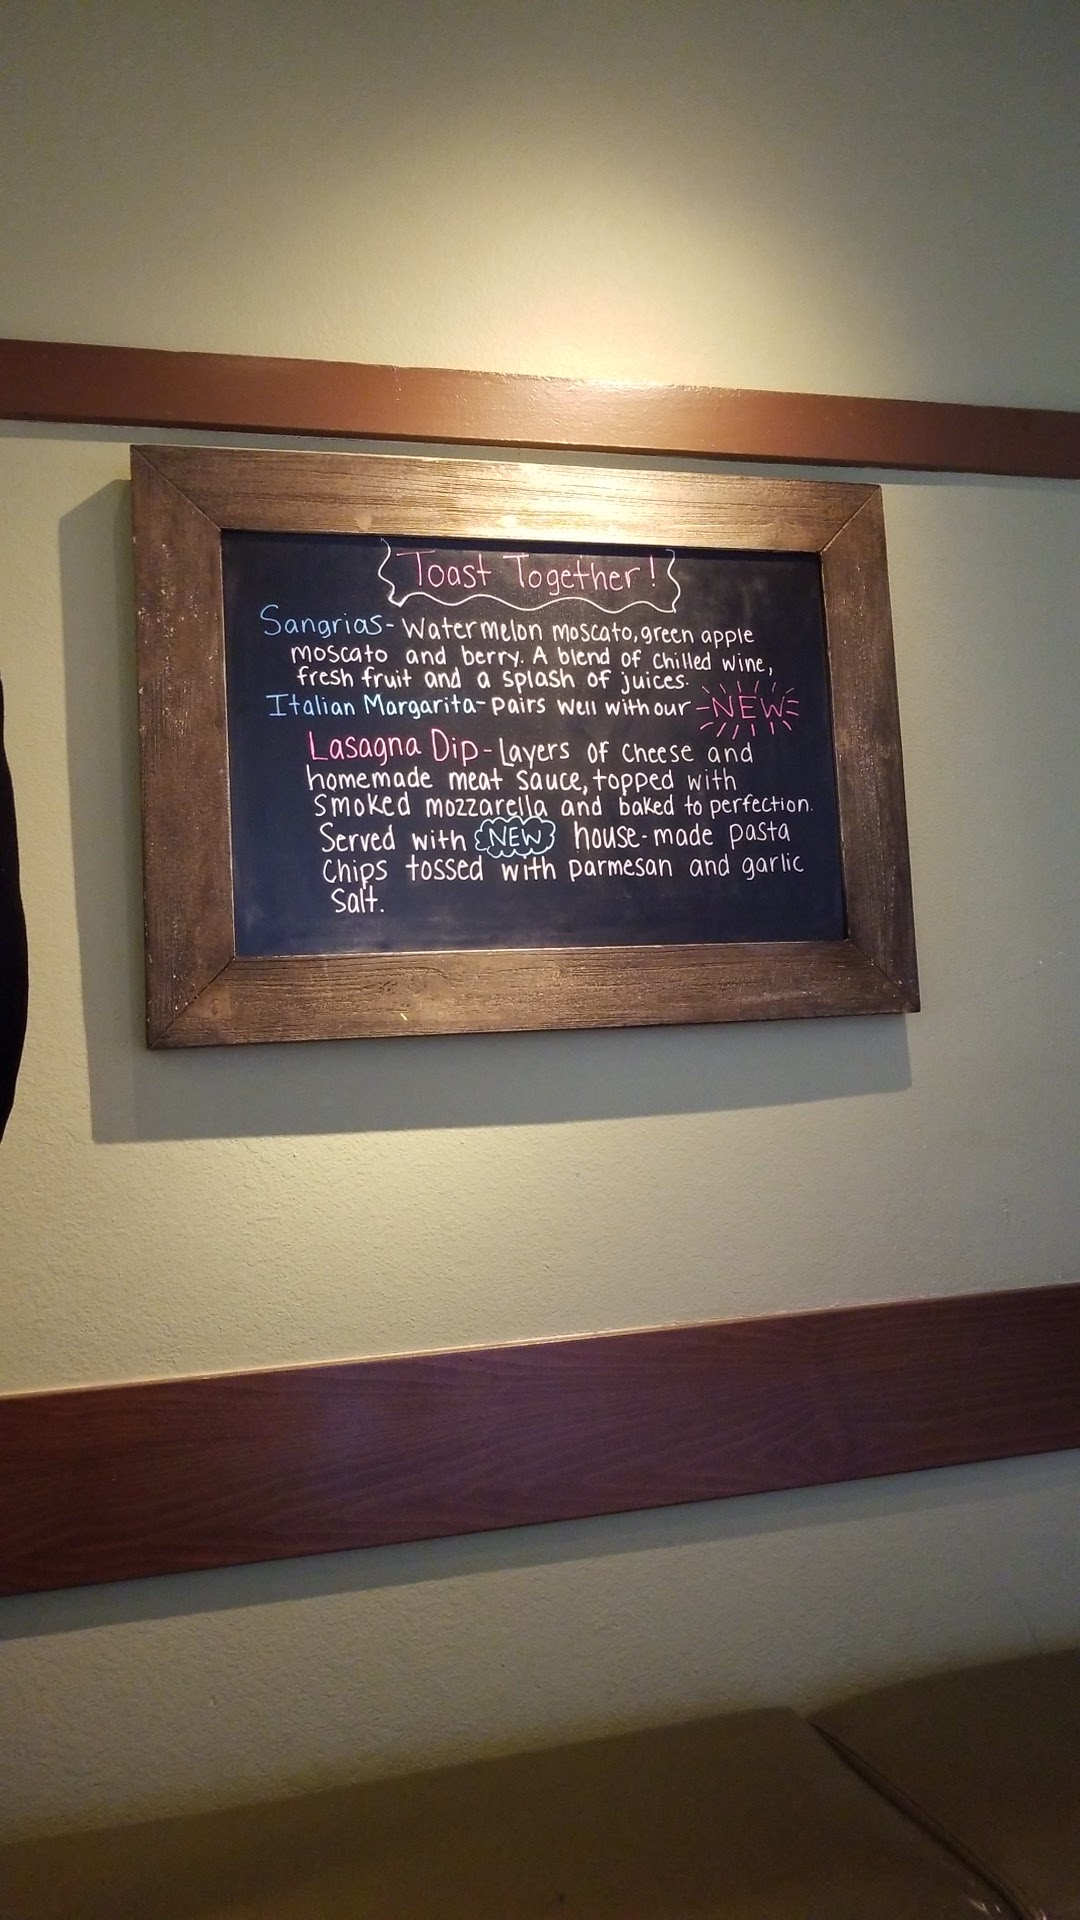 Toast Together!
Sangrias - Watermelon moscato, green apple
moscato and berry. A blend of chilled wine,
fresh fruit and a splash of juices.
Italian Margarita - Pairs well with our NEW
Lasagna Dip - Layers of cheese and
homemade meat sauce, topped with
smoked mozzarella and baked to perfection.
Served with NEW house-made pasta
chips tossed with parmesan and garlic
salt.